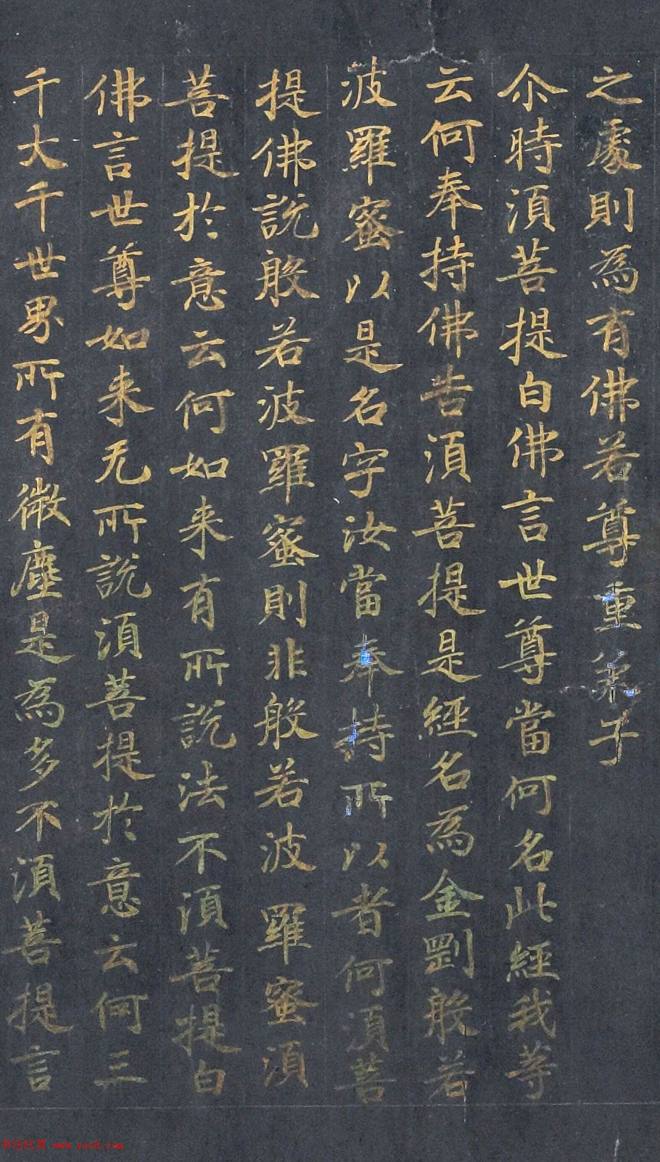 之處則為有佛若尊重弟子
尒時須菩提白佛言世尊當何名此經我等
云何奉持佛告須菩提是經名為金剛般若
波羅蜜以是名字汝當奉持所以者何須菩
提佛說般若波羅蜜則非般若波羅蜜須
菩提於意云何如来有所說法不須菩提白
佛言世尊如来无所說須菩提於意云何三
千大千世界所有微塵是為多不須菩提言